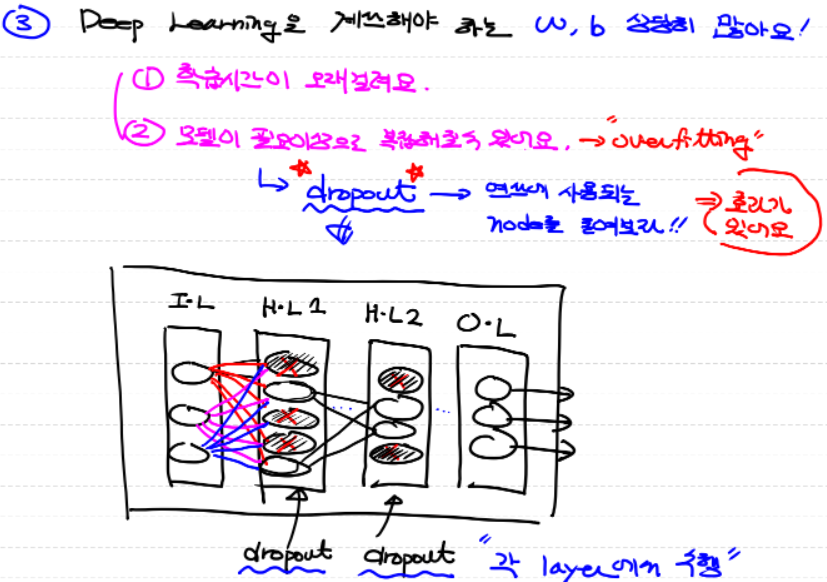 ③ Deep Learning은 계산해야 하는 w, b 상당히 많아요!
① 학습시간이 오래걸려요.
② 모델이 필요이상으로 복잡해질수 있어요. → "overfitting"
↳ dropout → 연산에 사용되는
node를 줄여보자!! ⇒ 효과가 있어요
I·L H·L1 H·L2 O·L
dropout dropout "각 layer에서 수행"